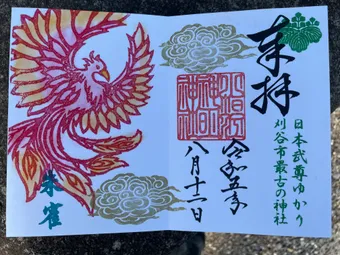 奉拝
日本武尊ゆかり
刈谷市最古の神社
令和五年
八月十一日
朱雀